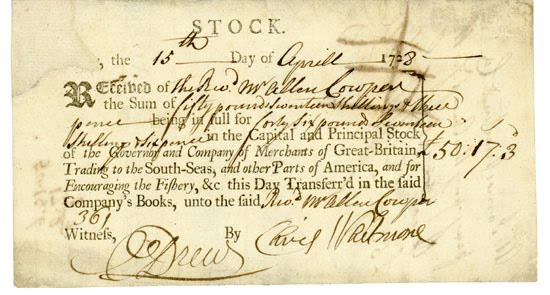 STOCK.
the 15th Day of Aprill 1728
Received of the Revd. Mr Allen Cowper
the Sum of fifty pounds seventeen Shillings & three
pence being in full for forty Six pounds Seventeen
Shillings & Six pence in the Capital and Principal Stock
of the Governor and Company of Merchants of Great-Britain, £50:17:3
Trading to the South-Seas, and other Parts of America, and for
Encouraging the Fishery, &c this Day Transferr'd in the said
Company's Books, unto the said Revd. Mr Allen Cowper
361
Witness, By
Drew